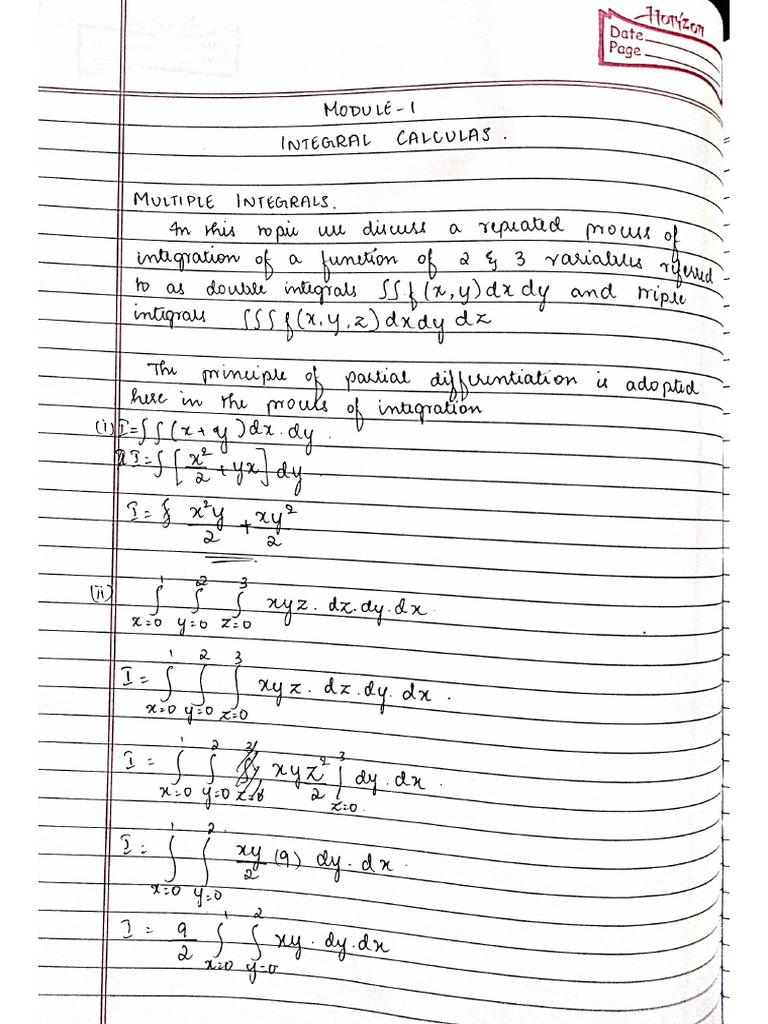 Horizon
Date
Page
MODULE-1
INTEGRAL CALCULAS.
MULTIPLE INTEGRALS.
In this topic we discuss a repeated process of
integration of a function of 2 & 3 variables refered
to as double integrals ∫∫f(x,y)dx dy and triple
integrals ∫∫∫f(x,y,z)dxdy dz
The principle of partial differentiation is adopted
here in the process of integration
(i) I=∫∫(x+y)dx.dy.
I=∫[x²/2+yx]dy.
I= x²y/2 + xy²/2
(ii) ∫_{x=0}^{1} ∫_{y=0}^{2} ∫_{z=0}^{3} xyz.dz.dy.dx.
I= ∫_{x=0}^{1} ∫_{y=0}^{2} ∫_{z=0}^{3} xyz.dz.dy.dx.
I= ∫_{x=0}^{1} ∫_{y=0}^{2} xyz²/2 |_{z=0}^{3} dy.dx.
I= ∫_{x=0}^{1} ∫_{y=0}^{2} xy/2 (9) dy.dx.
I= 9/2 ∫_{x=0}^{1} ∫_{y=0}^{2} xy.dy.dx